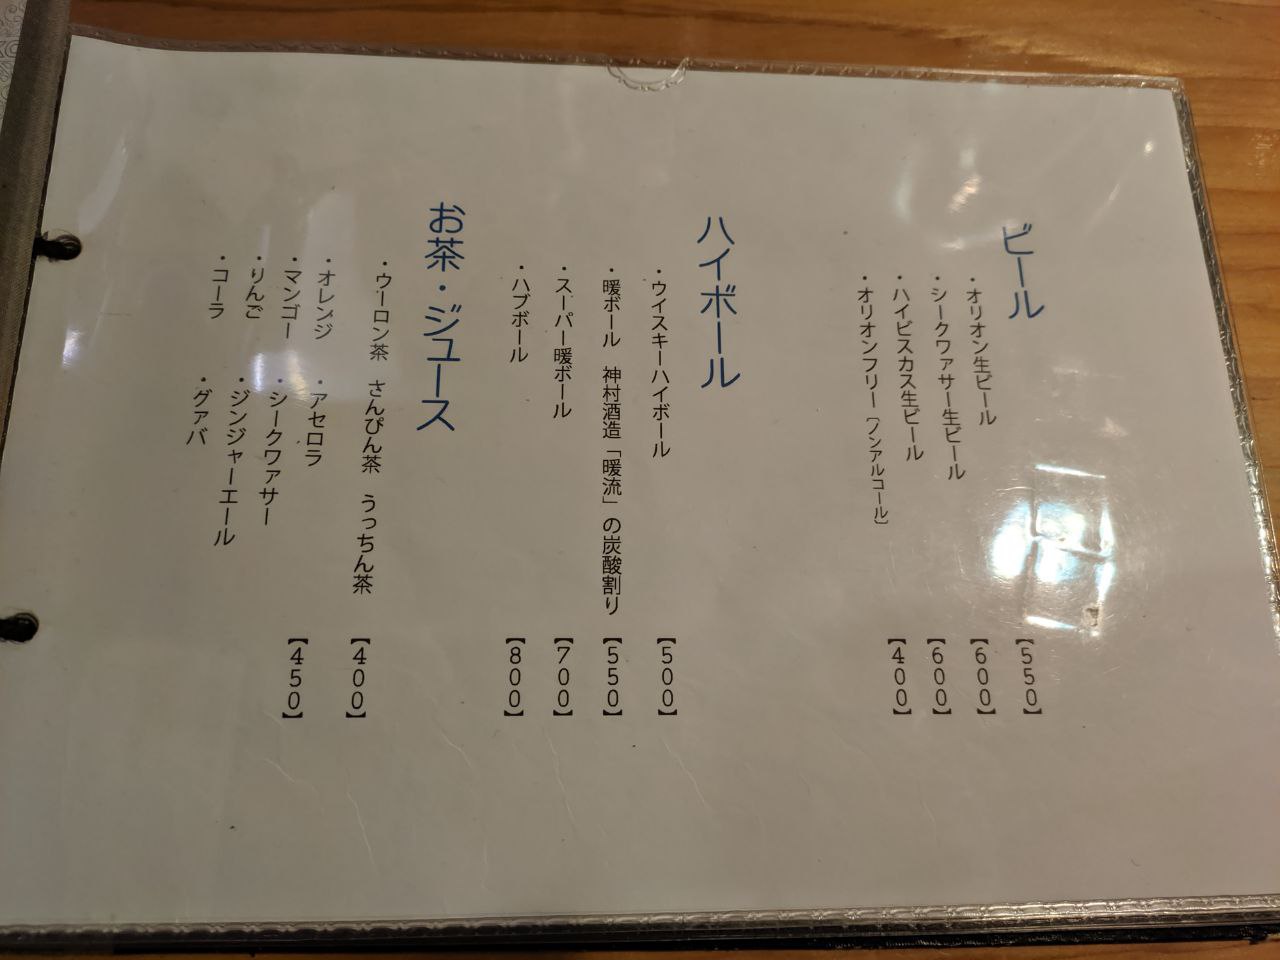 ビール
・オリオン生ビール 【550】
・シークワァサー生ビール 【600】
・ハイビスカス生ビール 【600】
・オリオンフリー〔ノンアルコール〕 【400】
ハイボール
・ウイスキーハイボール 【500】
・暖ボール 神村酒造「暖流」の炭酸割り 【550】
・スーパー暖ボール 【700】
・ハブボール 【800】
お茶・ジュース
・ウーロン茶 さんぴん茶 うっちん茶 【400】
・オレンジ ・アセロラ 【450】
・マンゴー ・シークワァサー
・りんご ・ジンジャーエール
・コーラ ・グァバ